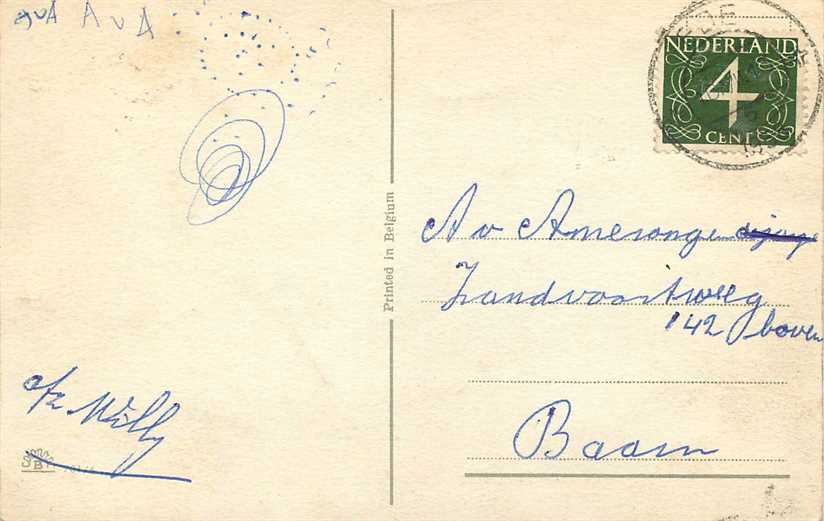 AVA AVA
NEDERLAND
4
CENT
Printed in Belgium
A v Amerongen
Zandvoortweg
142 boven
Baarn
afz Willy